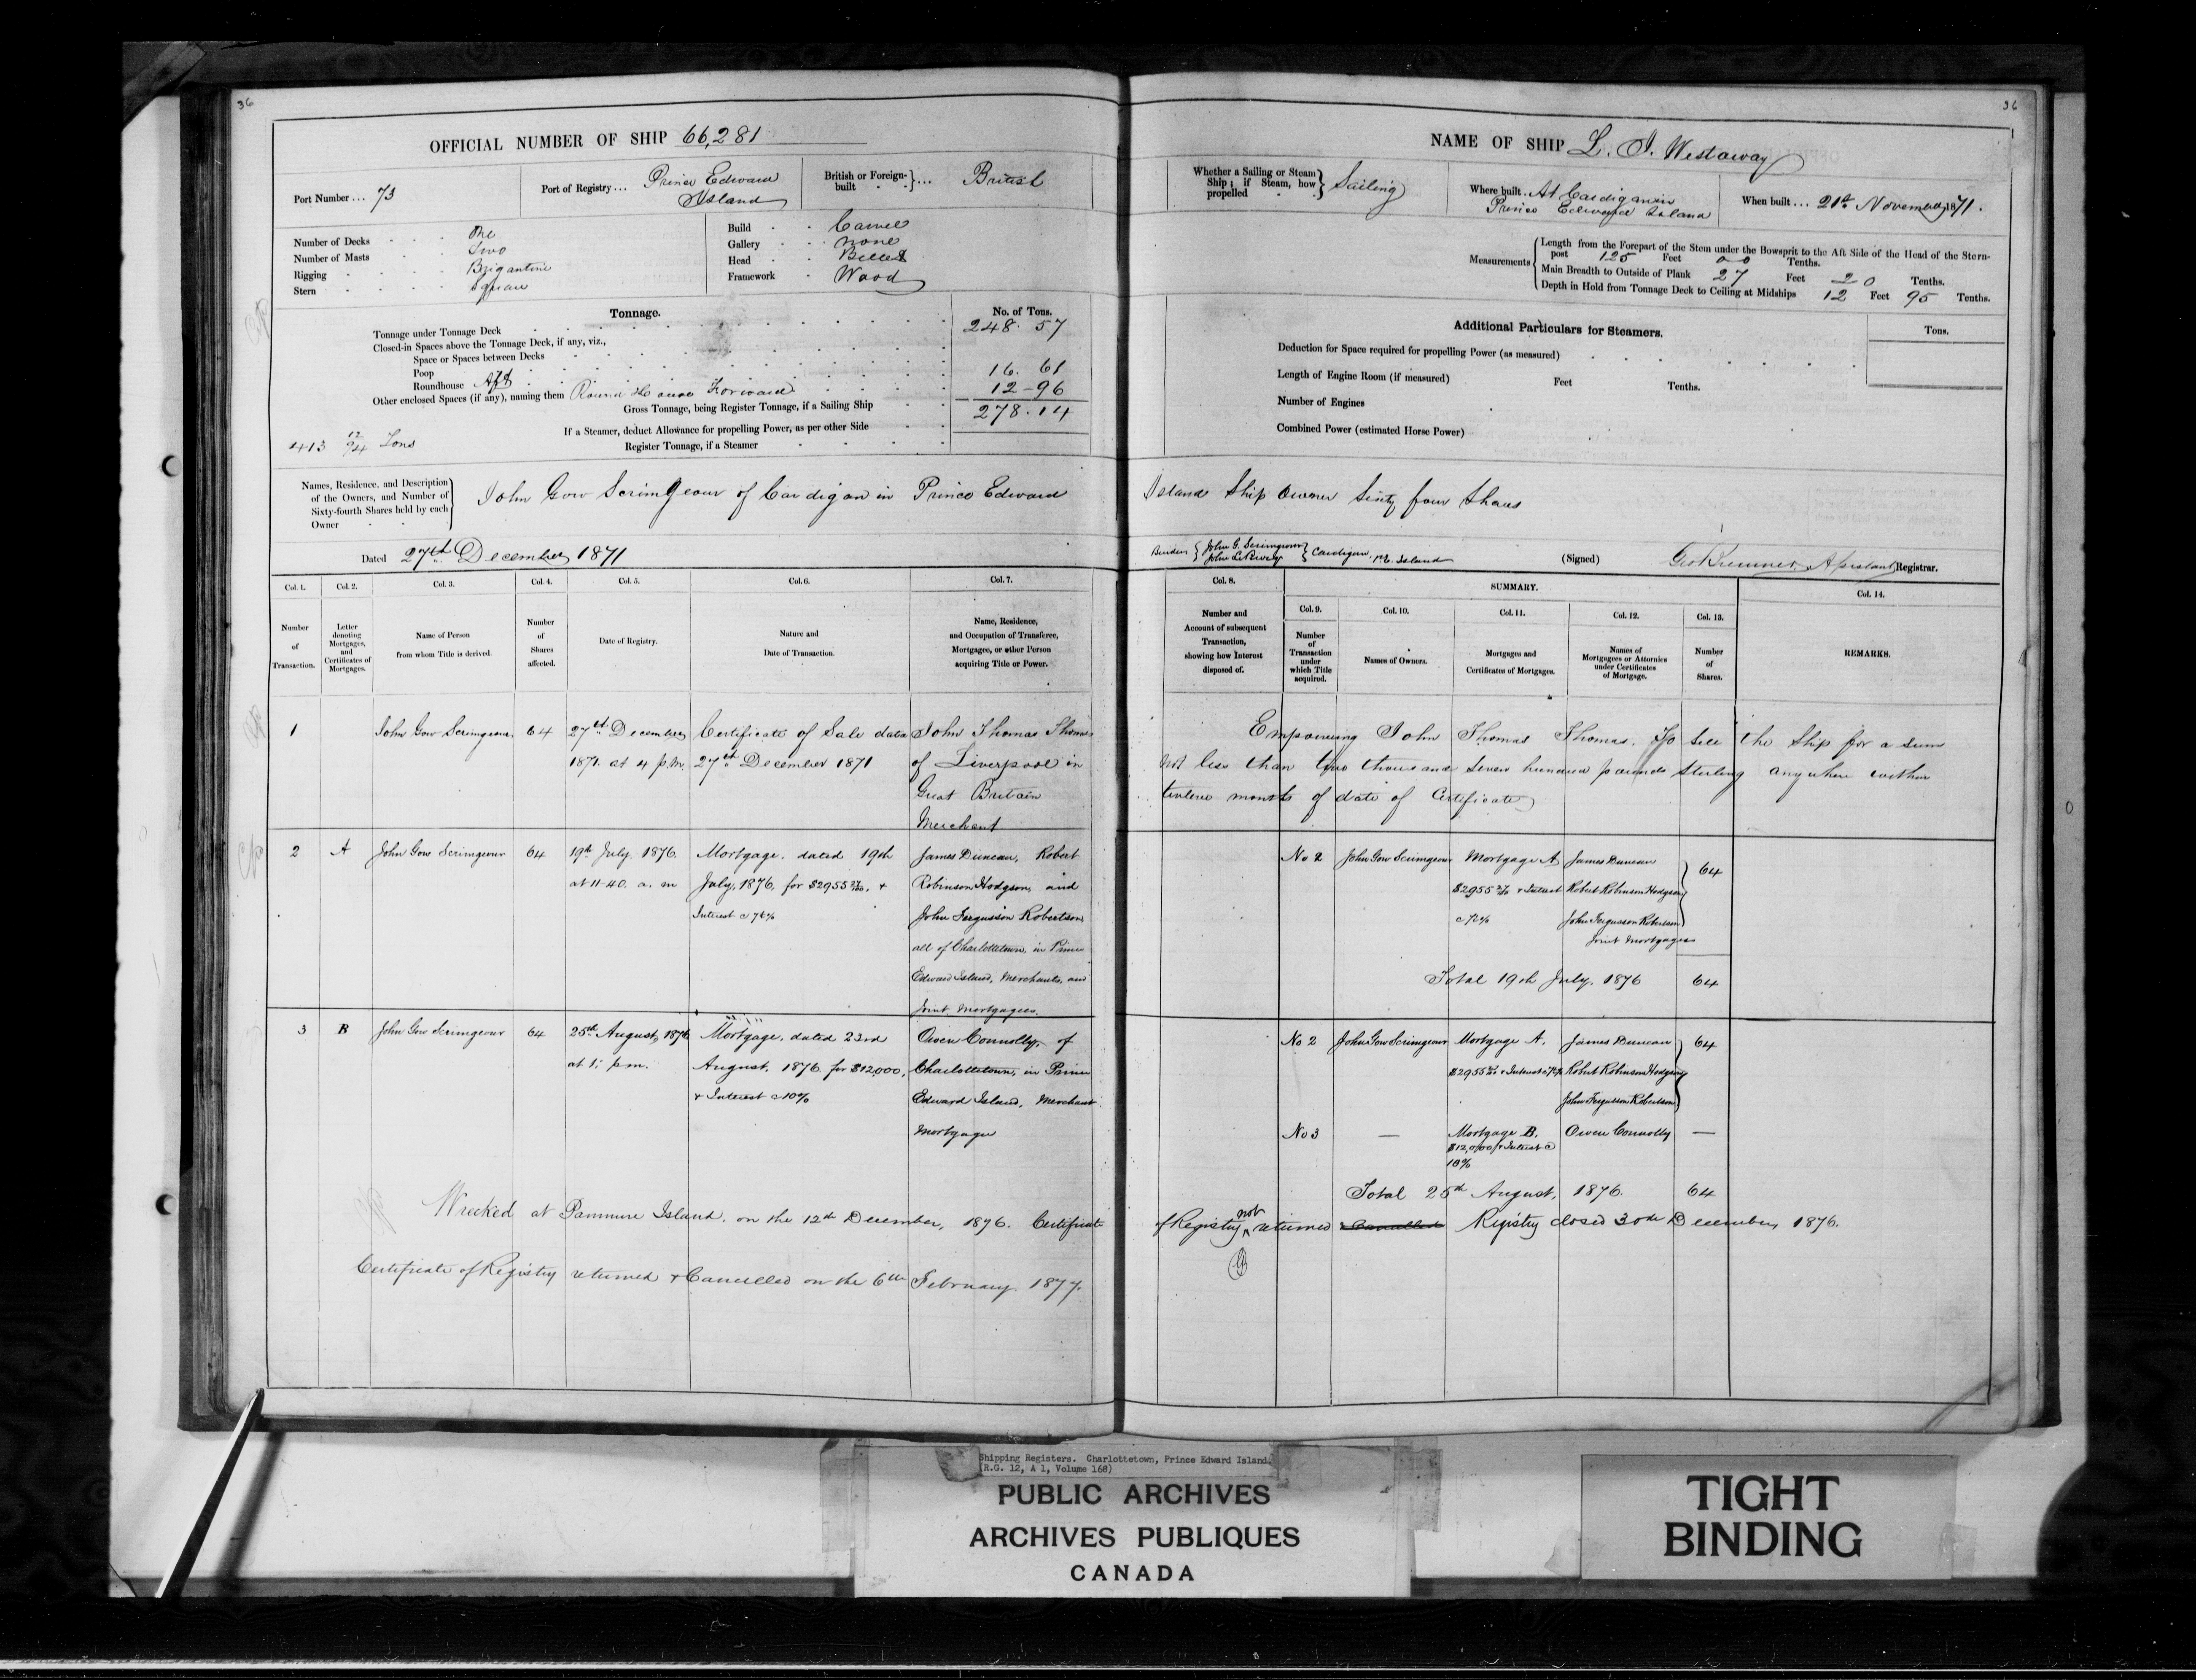 36
OFFICIAL NUMBER OF SHIP 66,281
Port Number ... 73
Port of Registry ... Prince Edward Island
British or Foreign-built ... British
Number of Decks One
Number of Masts Two
Rigging Brigantine
Stern Square
Build Carvel
Gallery None
Head Billet
Framework Wood
Tonnage.
No. of Tons.
Tonnage under Tonnage Deck 248.57
Closed-in Spaces above the Tonnage Deck, if any, viz.,
Space or Spaces between Decks
Poop
Roundhouse Aft 16.61
Other enclosed Spaces (if any), naming them Round House Forward 12-96
Gross Tonnage, being Register Tonnage, if a Sailing Ship 278.14
If a Steamer, deduct Allowance for propelling Power, as per other Side
Register Tonnage, if a Steamer
413 12/94 Tons
36
NAME OF SHIP L. J. Westaway
Whether a Sailing or Steam Ship; if Steam, how propelled Sailing
Where built At Cardigan in Prince Edward Island
When built ... 21st November 1871.
Measurements
Length from the Forepart of the Stem under the Bowsprit to the Aft Side of the Head of the Stern-post 125 Feet 00 Tenths.
Main Breadth to Outside of Plank 27 Feet 20 Tenths.
Depth in Hold from Tonnage Deck to Ceiling at Midships 12 Feet 95 Tenths.
Additional Particulars for Steamers.
Tons.
Deduction for Space required for propelling Power (as measured)
Length of Engine Room (if measured) Feet Tenths.
Number of Engines
Combined Power (estimated Horse Power)
Names, Residence, and Description of the Owners, and Number of Sixty-fourth Shares held by each Owner
John Gow Scrimgeour of Cardigan in Prince Edward Island Ship Owner Sixty four Shares
Dated 27th December 1871
Builders John G. Scrimgeour Cardigan, P.E. Island
(Signed) Geo Bremner Assistant Registrar.
Col. 1. Number of Transaction.
Col. 2. Letter denoting Mortgages, and Certificates of Mortgages.
Col. 3. Name of Person from whom Title is derived.
Col. 4. Number of Shares affected.
Col. 5. Date of Registry.
Col. 6. Nature and Date of Transaction.
Col. 7. Name, Residence, and Occupation of Transferee, Mortgagee, or other Person acquiring Title or Power.
Col. 8. Number and Account of subsequent Transaction, showing how Interest disposed of.
SUMMARY.
Col. 9. Number of Transaction under which Title acquired.
Col. 10. Names of Owners.
Col. 11. Mortgages and Certificates of Mortgages.
Col. 12. Names of Mortgagees or Attornies under Certificates of Mortgage.
Col. 13. Number of Shares.
Col. 14. REMARKS.
1
John Gow Scrimgeour
64
27th December
1871. at 4 p.m.
Certificate of Sale dated
27th December 1871
John Thomas Thomas
of Liverpool in
Great Britain
Merchant
Empowering John Thomas Thomas. To Sell the Ship for a sum
not less than two thousand seven hundred pounds sterling anywhere within
twelve months of date of Certificate
2
A
John Gow Scrimgeour
64
19th July 1876.
at 11-40. a. m
Mortgage. dated 19th
July, 1876, for $2955 , +
Interest @ 7½%
James Duncan, Robert
Robinson Hodgson, and
John Fergusson Robertson
all of Charlottetown, in Prince
Edward Island, Merchants, and
Joint Mortgagees.
No 2
John Gow Scrimgeour
Mortgage A
$2955 + Interest
@ 7½%
James Duncan
Robert Robinson Hodgson
John Fergusson Robertson
Joint Mortgagees
64
Total 19th July. 1876 64
3
B
John Gow Scrimgeour
64
25th August, 1876
at 1. pm.
Mortgage, dated 23rd
August. 1876 for $12,000,
+ Interest @ 10%
Owen Connolly, of
Charlottetown, in Prince
Edward Island, Merchant
Mortgagee
No 2
John Gow Scrimgeour
Mortgage A.
$2955 + Interest
James Duncan
Robert Robinson Hodgson
John Fergusson Robertson
64
No 3
—
Mortgage B.
$12,000 + Interest @
10%
Owen Connolly
—
Total 25th August, 1876. 64
Wrecked at Panmure Island. on the 12th December, 1876. Certificate of Registry not returned & Cancelled Registry closed 30th December, 1876.
Certificate of Registry returned + Cancelled on the 6th February 1877.
Shipping Registers. Charlottetown, Prince Edward Island.
(R.G. 12, A 1, Volume 168)
PUBLIC ARCHIVES
ARCHIVES PUBLIQUES
CANADA
TIGHT
BINDING